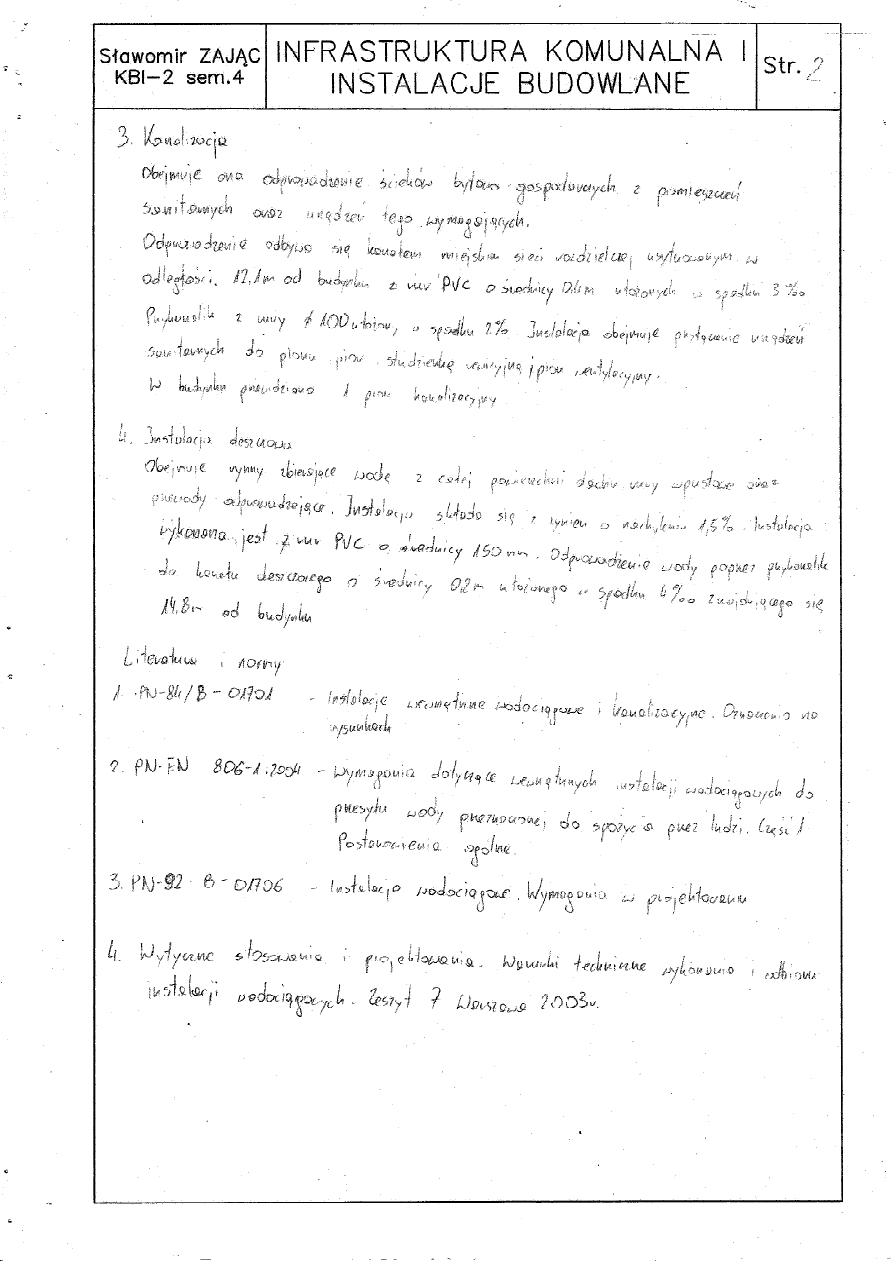 Sławomir ZAJĄC
KBI-2 sem.4
INFRASTRUKTURA KOMUNALNA I
INSTALACJE BUDOWLANE
Str. 2
3. Kanalizacja
Obejmuje ona odprowadzenie ścieków bytowo gospodarczych z pomieszczeń
sanitarnych oraz urządzeń tego wymagających.
Odprowadzenie odbywa się kanałem miejskim sieci rozdzielczej usytuowanym w
odległości 12,1m od budynku z rur PVC o średnicy 0,4m ułożonych w spadku 3‰
Przykanalik z rury ϕ 100 ułożony w spadku 2%. Instalacja obejmuje przyłączenie urządzeń
sanitarnych do pionu, pion, studzienkę rewizyjną i pion wentylacyjny.
W budynku przewidziano 1 pion kanalizacyjny
4. Instalacja deszczowa
Obejmuje rynny zbierające wodę z całej powierzchni dachu rury wpustowe oraz
przewody odprowadzające. Instalacja składa się z rynien o nachyleniu 1,5%. Instalacja
wykonana jest z rur PVC o średnicy 150 mm. Odprowadzenie wody poprzez przykanalik
do kanału deszczowego o średnicy 0,2m ułożonego w spadku 4‰ znajdującego się
14,8m od budynku
Literatura i normy
1. PN-84/B-01701 - Instalacje wewnętrzne wodociągowe i kanalizacyjne. Oznaczenia na
rysunkach
2. PN-EN 806-1:2004 - Wymagania dotyczące wewnętrznych instalacji wodociągowych do
przesyłu wody przeznaczonej do spożycia przez ludzi. Część 1
Postanowienia ogólne.
3. PN-92 B-01706 - Instalacje wodociągowe. Wymagania w projektowaniu
4. Wytyczne stosowania i projektowania. Warunki techniczne wykonania i odbioru
instalacji wodociągowych. Zeszyt 7 Warszawa 2003r.